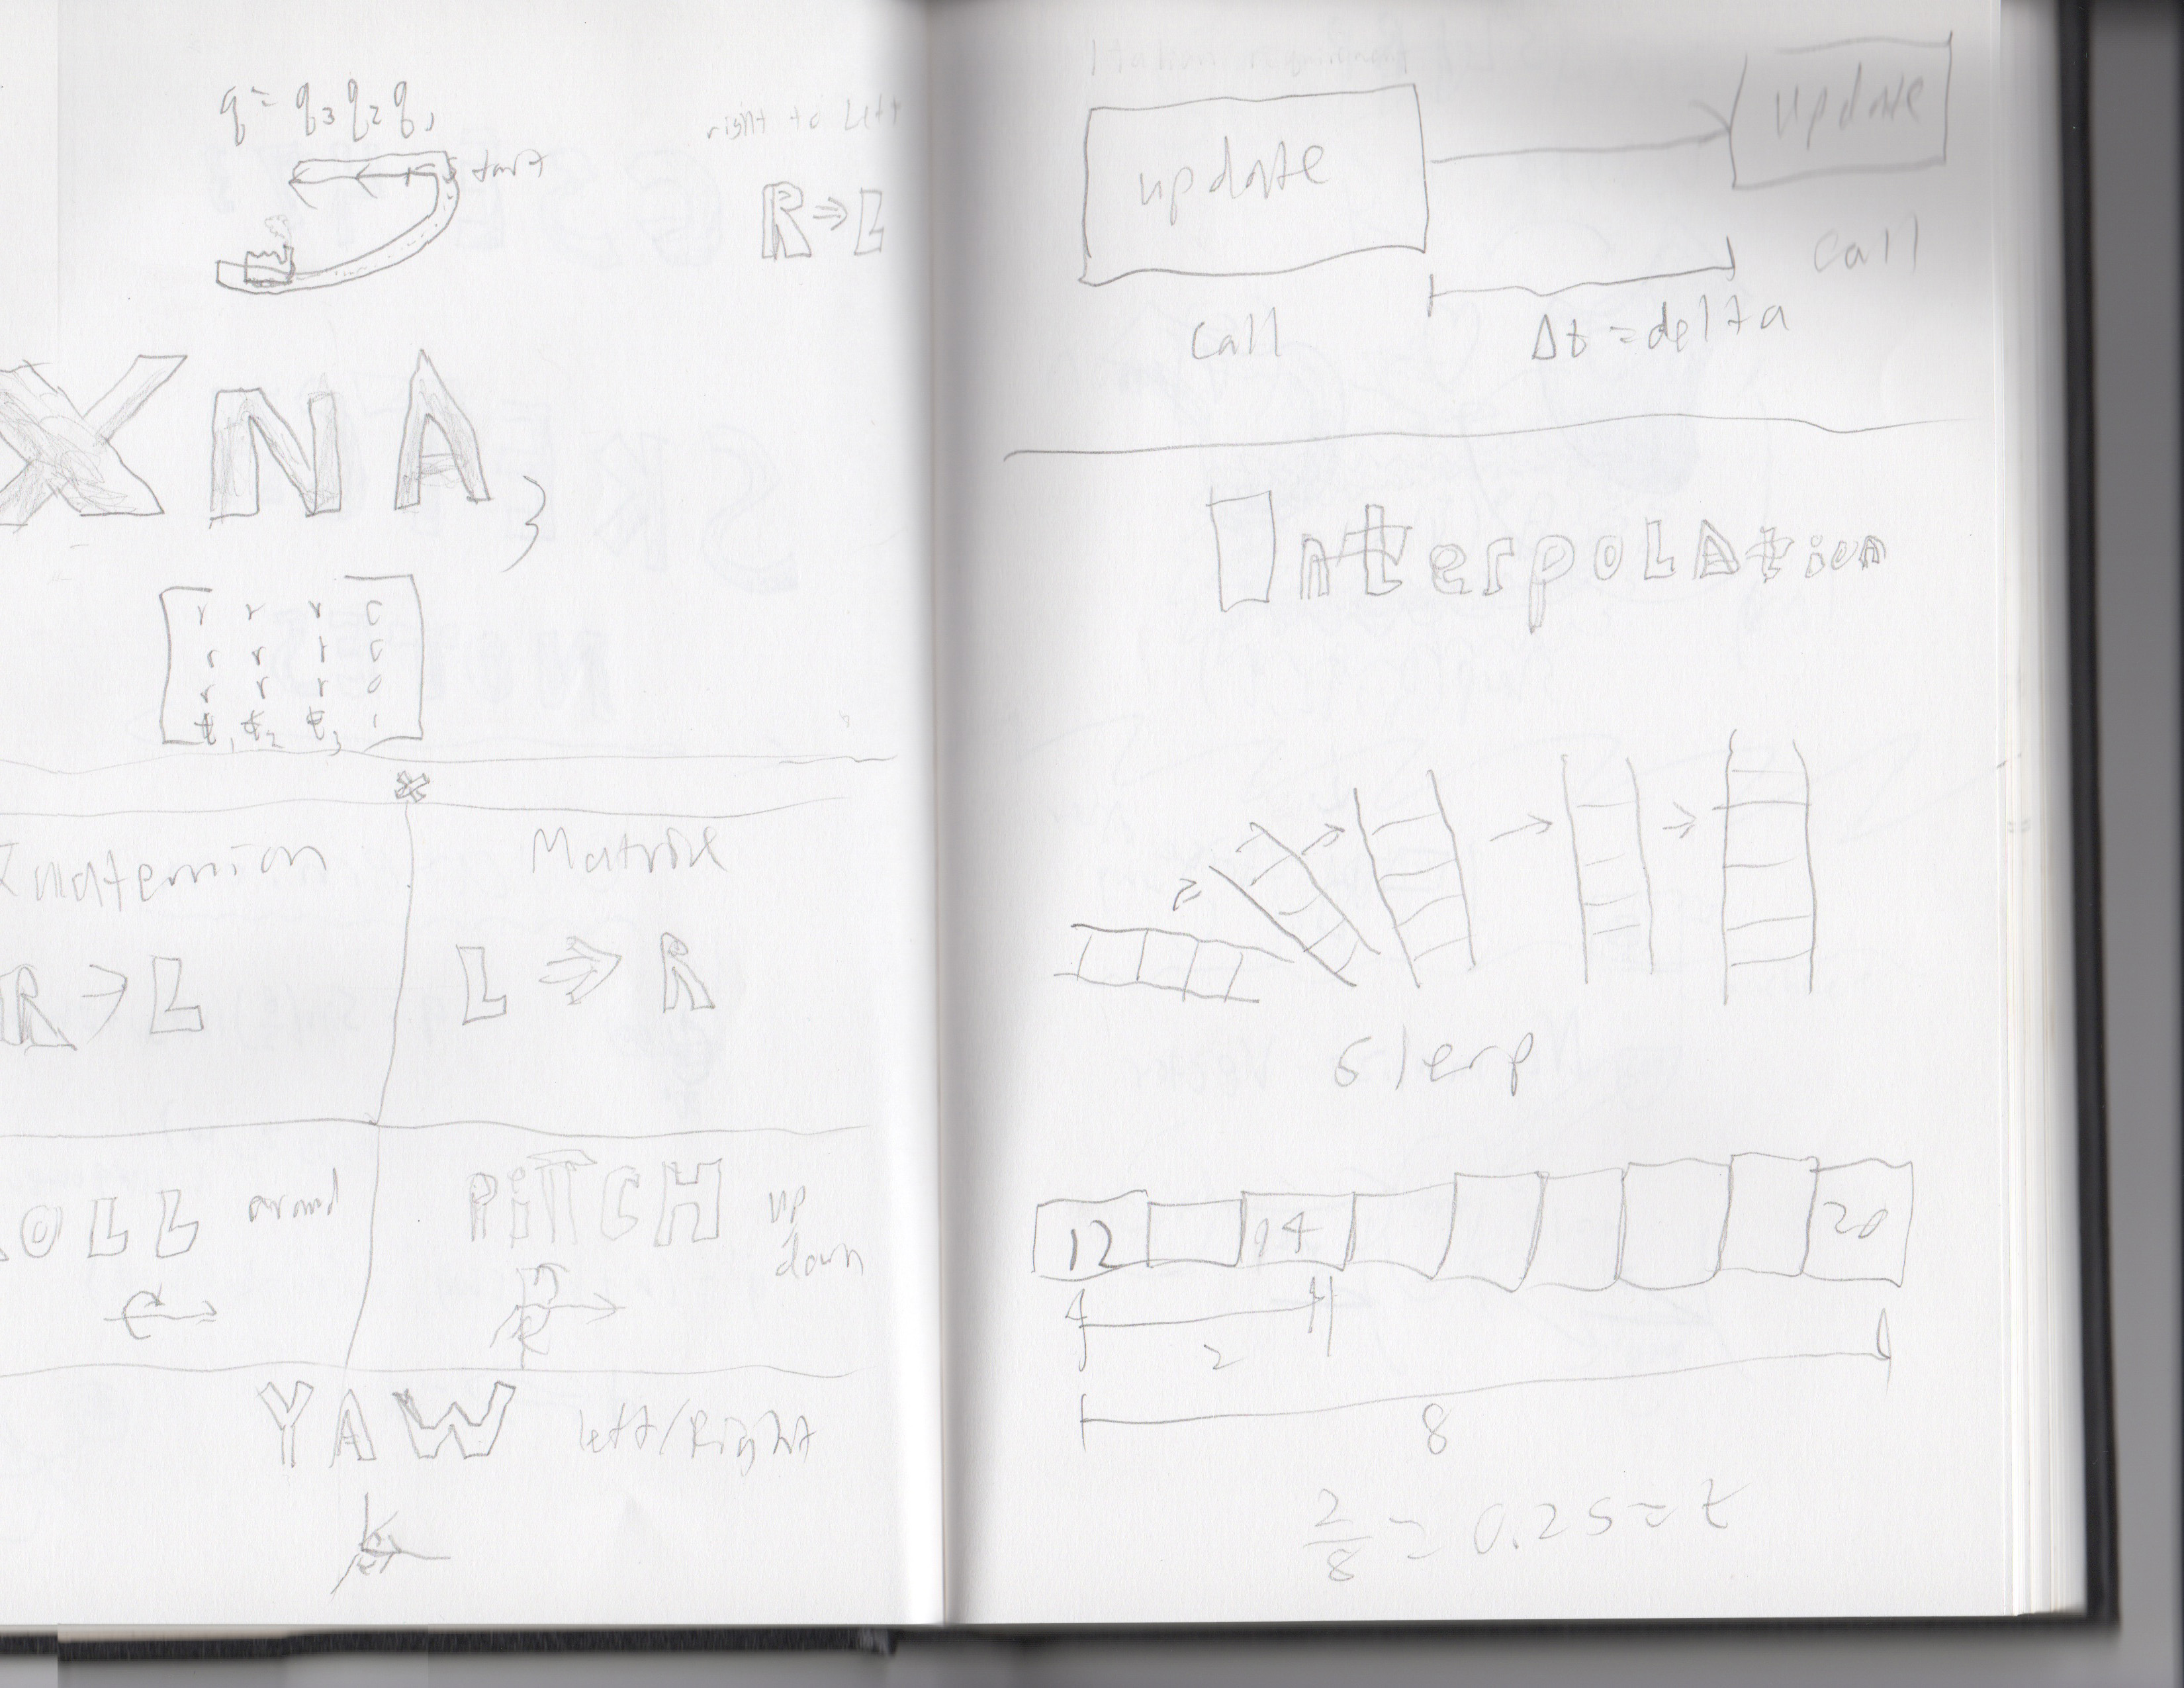 q = q3 q2 q1
start
right to Left
R ⇒ L
XNA
r r r 0
r r r 0
r r r 0
t1 t2 t3 1
*
Matrix
R → L
L ⇒ R
OLL around
PiTCH up down
YAW left/Right
update
update
call
call
Δt = delta
InterpoLAtion
slerp
12 14 20
2
8
2/8 = 0.25 = t